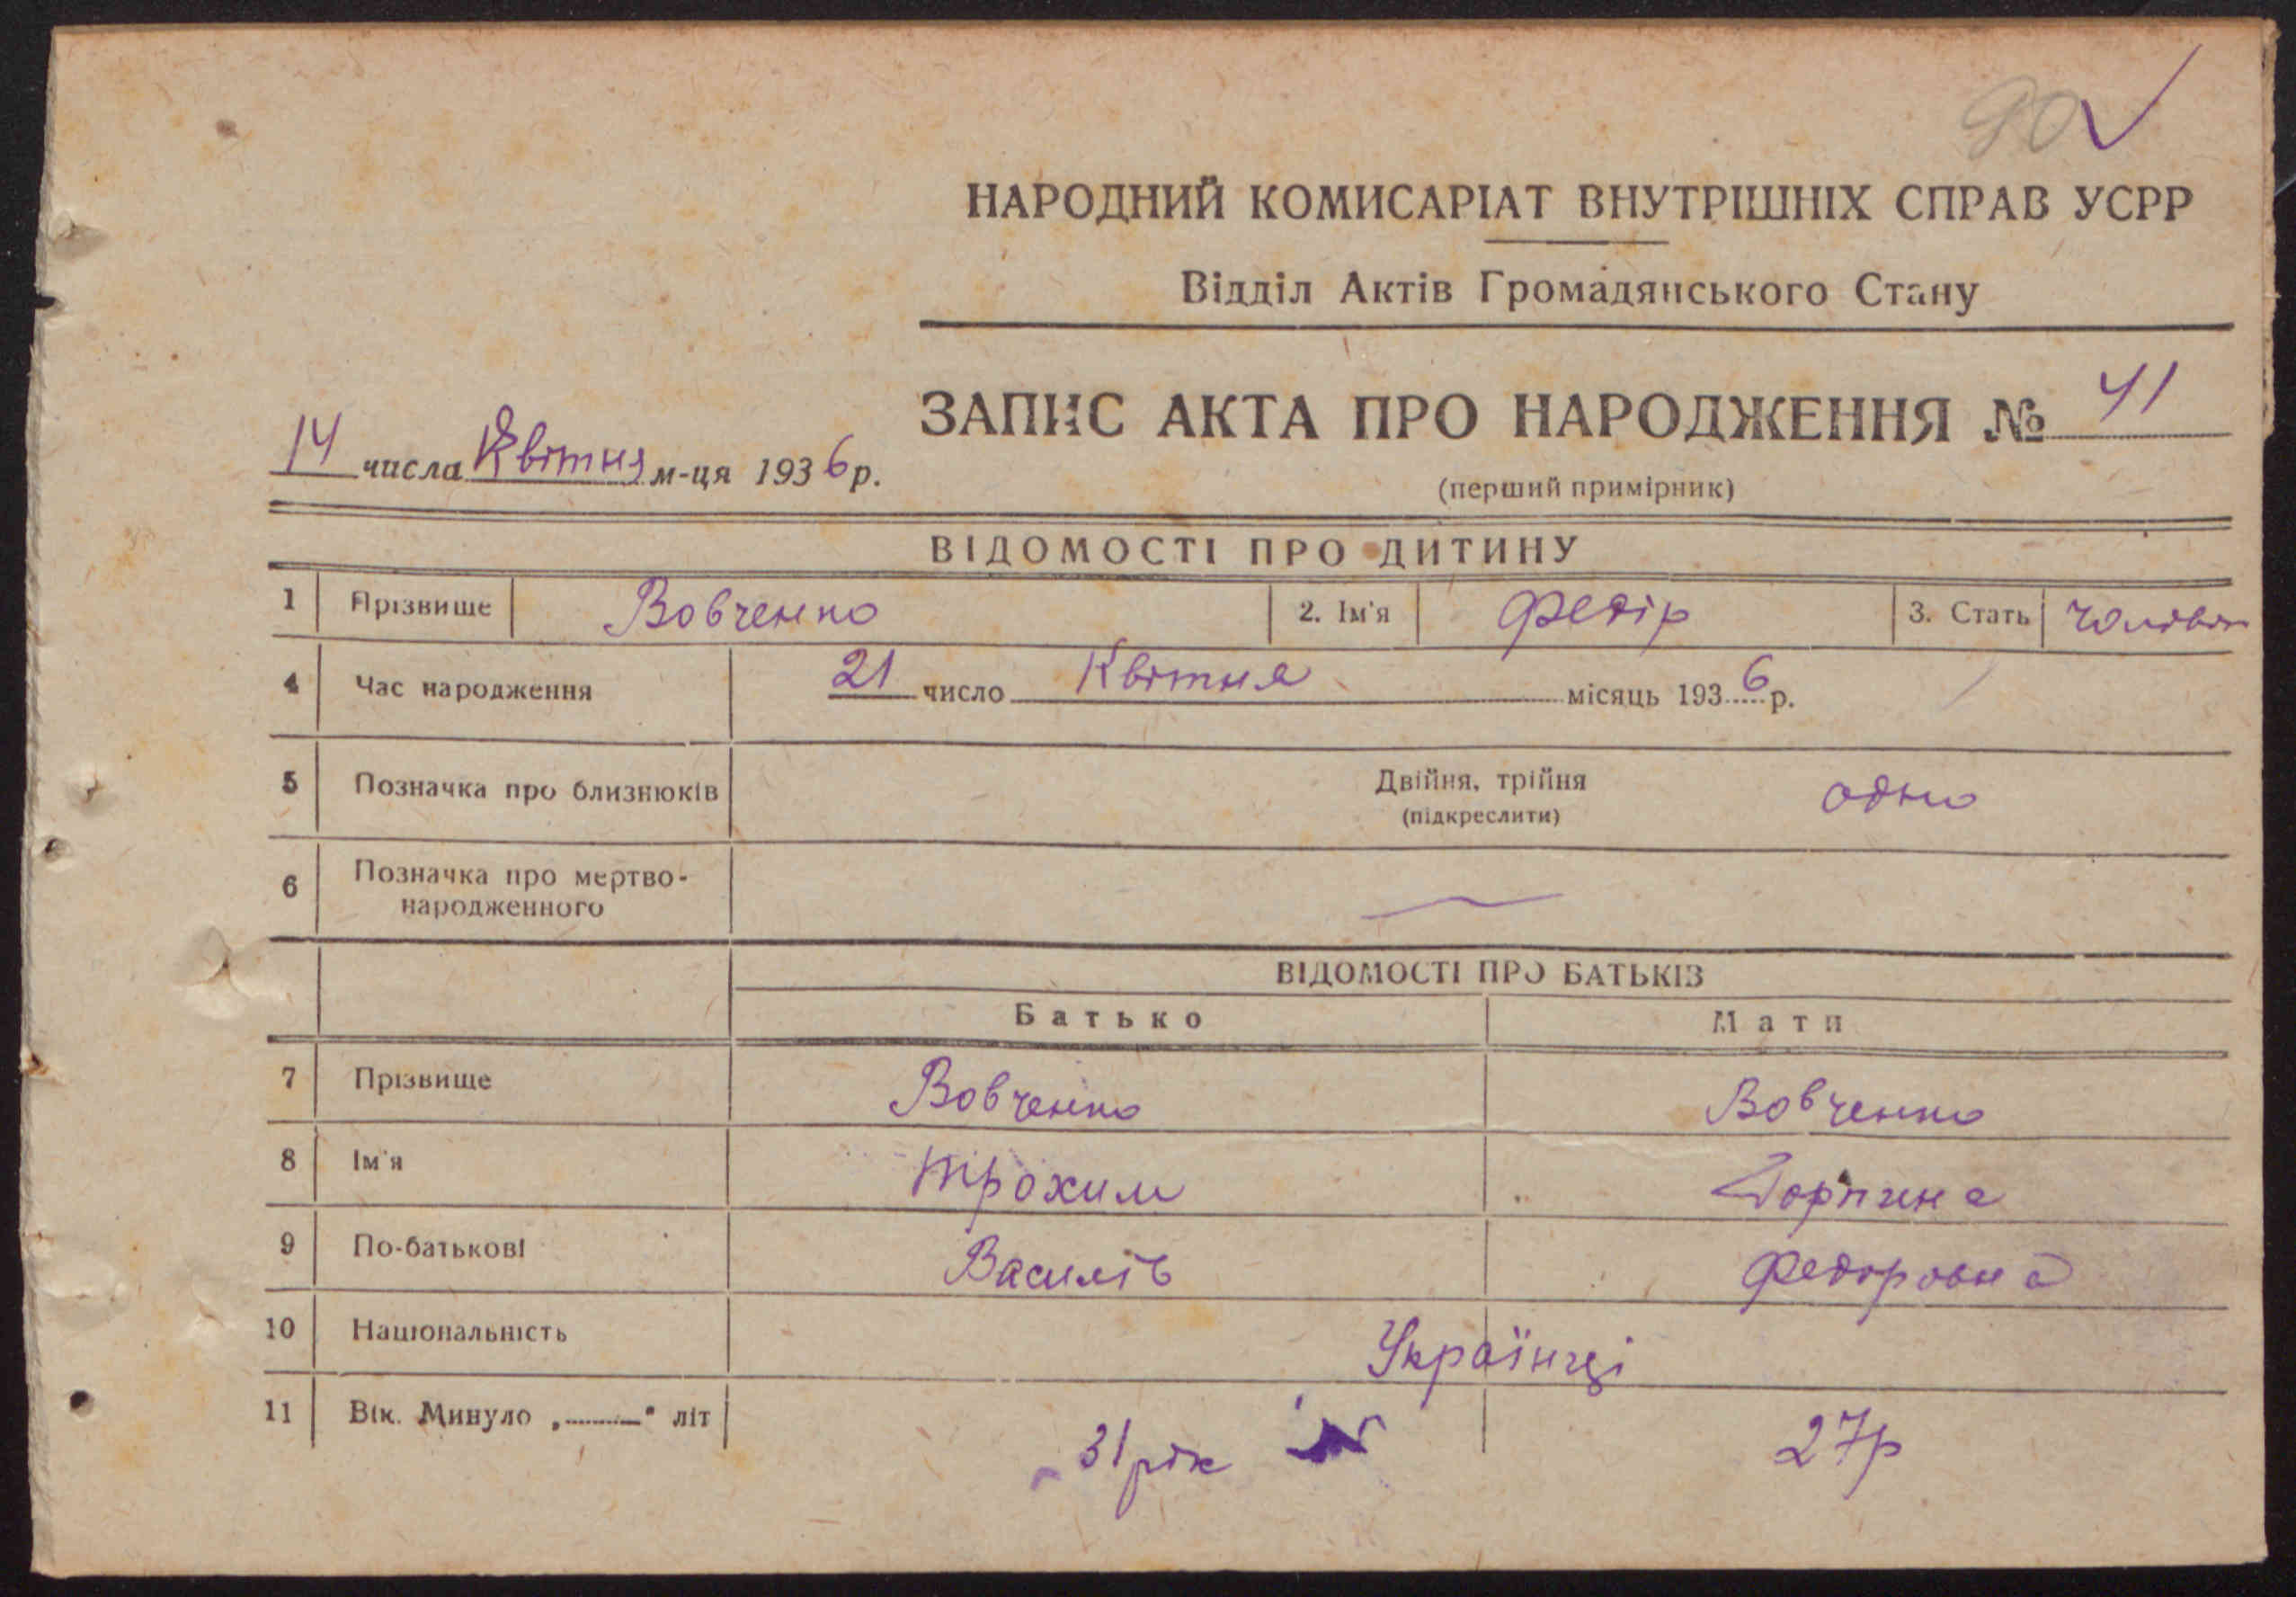 90
НАРОДНИЙ КОМИСАРІАТ ВНУТРІШНІХ СПРАВ УСРР
Відділ Актів Громадянського Стану
ЗАПИС АКТА ПРО НАРОДЖЕННЯ № 41
14 числа Квітня м-ця 1936 р.
(перший примірник)
ВІДОМОСТІ ПРО ДИТИНУ
1 Прізвище Вовченко 2. Ім'я Федір 3. Стать
4 Час народження 21 число Квітня місяць 1936 р.
5 Позначка про близнюків Двійня, трійня одно
(підкреслити)
6 Позначка про мертво-
народженного
ВІДОМОСТІ ПРО БАТЬКІВ
Батько Мати
7 Прізвище Вовченко Вовченко
8 Ім'я Трохим
9 По-батькові Василів Федоровна
10 Національність Українці
11 Вік. Минуло „ " літ 31 рік 27р